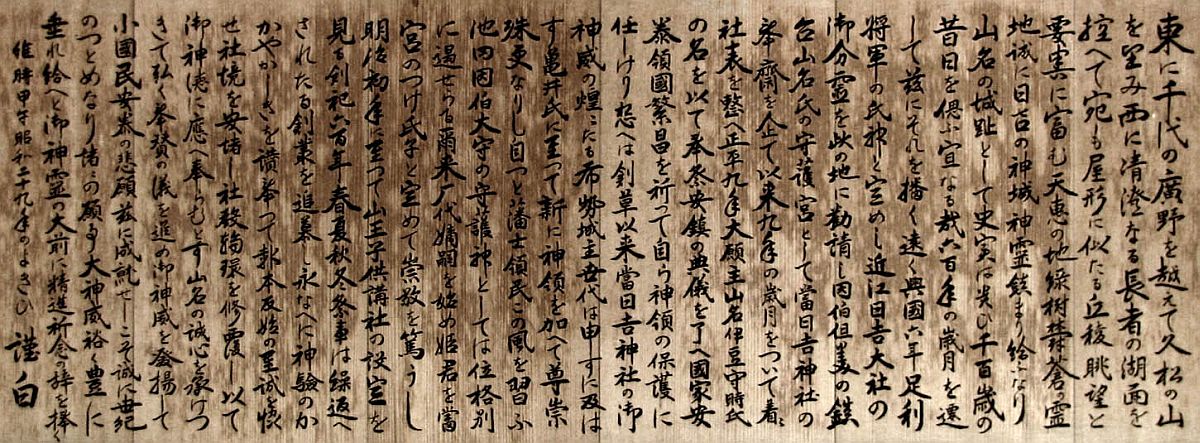 東に千代の廣野を越えて久松の山
を望み西に清澄なる長者の湖面を
控へて宛も屋形に似たる丘稜眺望と
要害に富む天恵の地緑樹欝蒼の霊
地誠に日吉の神域神霊鎮まり給ふなり
山名の城趾として史実は
昔日を偲ぶ宜なる哉六百年の歳月を
して茲にそれを播く遠く興國六年足利
将軍の氏神と定めし近江日吉大社の
御分霊を此の地に勧請し因伯但美の鎮
台山名氏の守護宮として當日吉神社の
奉齋を企て以来九年の歳月をついて着々
社表を整へ正平九年大願主山名伊豆守時氏
の名を以て奉祭安鎮の典儀を了へ國家安
泰領國繁昌を祈つて自ら神領の保護に
任しけり想へは創草以来當日吉神社の御
神威の煌々たる布勢城主世代は申すに及は
す亀井氏に至つて新に神領を加へて尊崇
殊更なりし自つと藩士領民この風を習ふ
池田因伯大守の守護神としては位格別
に遇せらる爾来歴代嫡嗣を始め姫君を當
宮のつけ氏子と定めて崇敬を篤うし
明治初年に至つて山王子供講社の設定を
見る創祀六百年春夏秋冬冬事は繰返へ
されたる創業を追慕し永なへに神験のか
かやかしきを讃奉つて報本反始の至誠を懐
せ社境を安堵し社殿鎬環を修覆し以て
御神徳に應へ奉らむとす山名の誠心を承けつ
きて弘く奉賛の儀を進め御神威を發揚して
小國民安泰の悲願茲に成就せしこそ誠に世紀
のつとめなり諸々の願事大神威裕く豊に
垂れ給へと御神霊の大前に精進祈念の辞を捧く
維時甲午昭和二十九年のよきひ 謹白